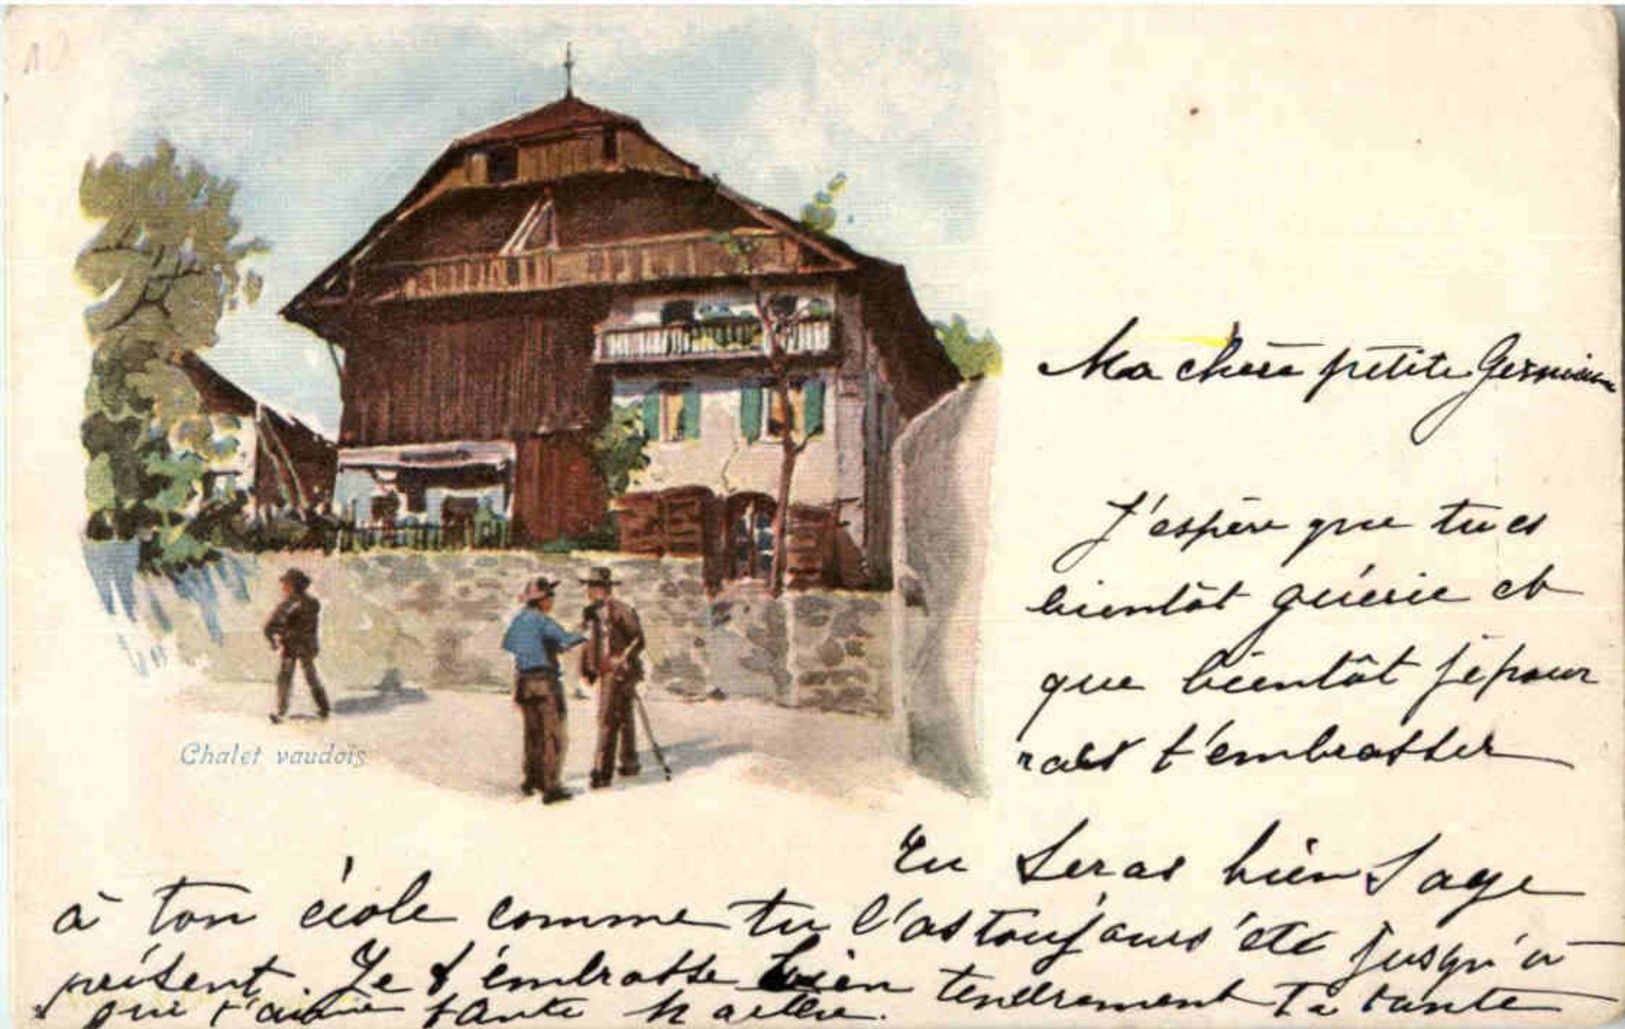 Chalet vaudois
Ma chère petite Germaine
J'espère que tu es
bientôt guérie et
que bientôt je pour
rais t'embrasser
Tu seras bien sage
à ton école comme tu l'as toujours été jusqu'à
présent. Je t'embrasse bien tendrement Ta tante
qui t'aime tante